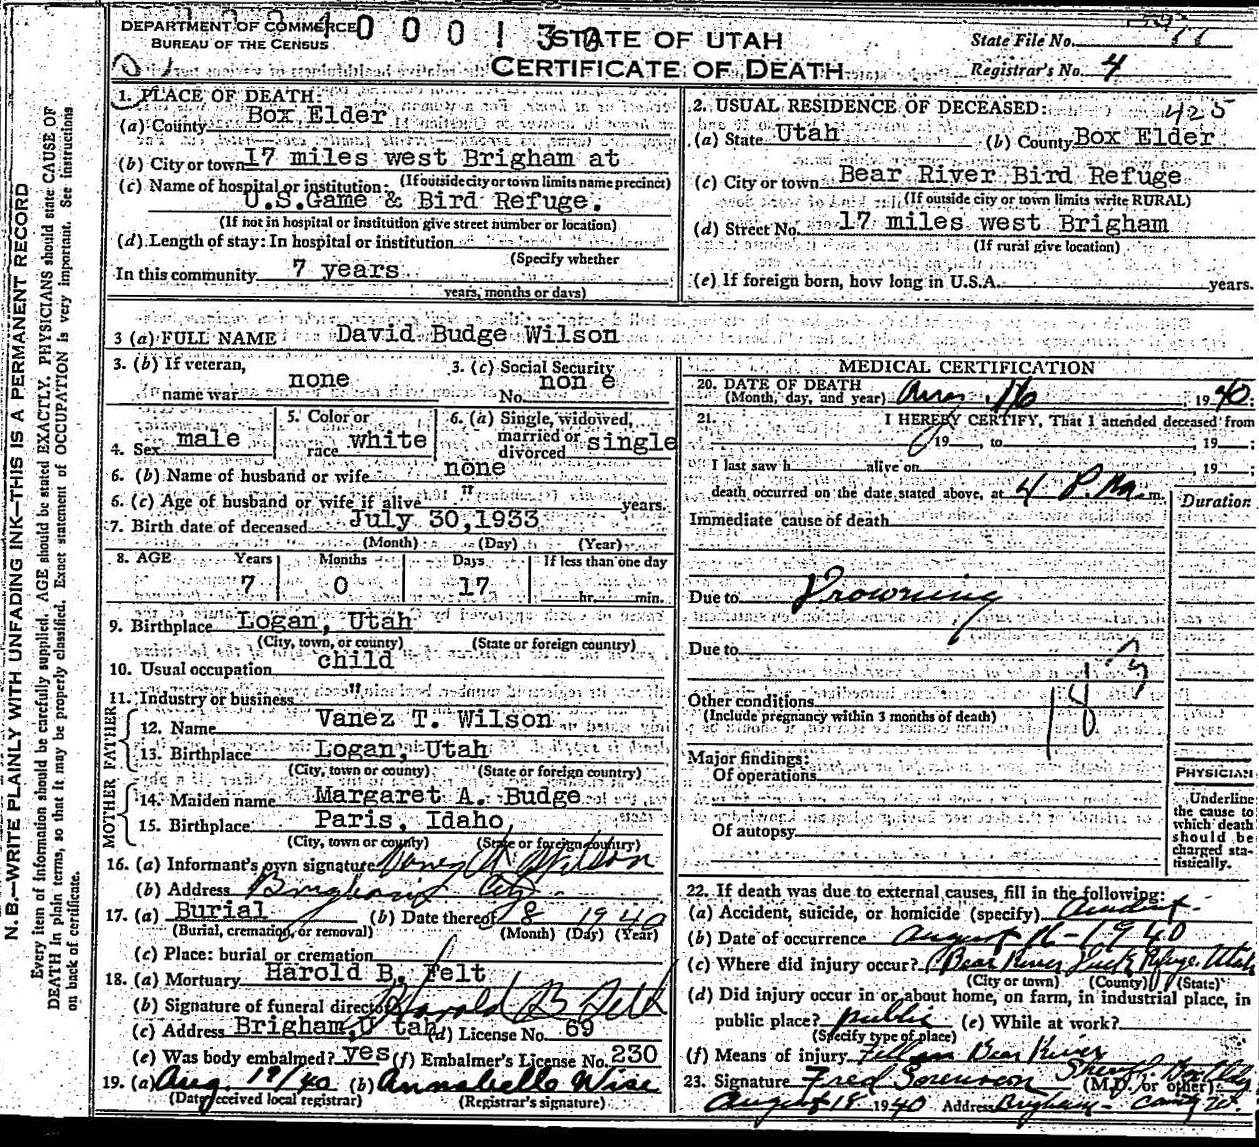 DEPARTMENT OF COMMERCE
BUREAU OF THE CENSUS
STATE OF UTAH
CERTIFICATE OF DEATH
State File No.
Registrar's No. 4
N.B.—WRITE PLAINLY WITH UNFADING INK—THIS IS A PERMANENT RECORD
Every item of information should be carefully supplied. AGE should be stated EXACTLY. PHYSICIANS should state CAUSE OF
DEATH in plain terms, so that it may be properly classified. Exact statement of OCCUPATION is very important. See instructions
on back of certificate.
1. PLACE OF DEATH:
(a) County Box Elder
(b) City or town 17 miles west Brigham at
(If outside city or town limits name precinct)
(c) Name of hospital or institution:
U.S.Game & Bird Refuge.
(If not in hospital or institution give street number or location)
(d) Length of stay: In hospital or institution
(Specify whether
In this community 7 years
years, months or days)
2. USUAL RESIDENCE OF DECEASED: 425
(a) State Utah (b) County Box Elder
(c) City or town Bear River Bird Refuge
(If outside city or town limits write RURAL)
(d) Street No. 17 miles west Brigham
(If rural give location)
(e) If foreign born, how long in U.S.A. years.
3 (a) FULL NAME David Budge Wilson
3. (b) If veteran,
name war none
3. (c) Social Security
No. non e
4. Sex male
5. Color or
race white
6. (a) Single, widowed,
married or
divorced single
6. (b) Name of husband or wife none
6. (c) Age of husband or wife if alive " years.
7. Birth date of deceased July 30,1933
(Month) (Day) (Year)
8. AGE Years Months Days If less than one day
7 0 17 hr. min.
9. Birthplace Logan, Utah
(City, town, or county) (State or foreign country)
10. Usual occupation child
11. Industry or business "
FATHER
12. Name Vanez T. Wilson
13. Birthplace Logan, Utah
(City, town or county) (State or foreign country)
MOTHER
14. Maiden name Margaret A. Budge
15. Birthplace Paris, Idaho
(City, town or county) (State or foreign country)
16. (a) Informant's own signature Vanez T. Wilson
(b) Address Brigham City
17. (a) Burial (b) Date thereof 8 1940
(Burial, cremation, or removal) (Month) (Day) (Year)
(c) Place: burial or cremation
18. (a) Mortuary Harold B. Felt
(b) Signature of funeral director Harold B Felt
(c) Address Brigham,U tah (d) License No. 69
(e) Was body embalmed? yes (f) Embalmer's License No. 230
19. (a) Aug. 19/40 (b) Annabelle Wise
(Date received local registrar) (Registrar's signature)
MEDICAL CERTIFICATION
20. DATE OF DEATH
(Month, day, and year) Aug. 16, 1940.
21. I HEREBY CERTIFY, That I attended deceased from
19 , to , 19 ;
I last saw h alive on , 19 ;
death occurred on the date stated above, at 4 P.M. m.
Duration
Immediate cause of death
Due to Drowning
Due to
183
Other conditions
(Include pregnancy within 3 months of death)
Major findings:
Of operations
Of autopsy
PHYSICIAN
Underline
the cause to
which death
should be
charged sta-
tistically.
22. If death was due to external causes, fill in the following:
(a) Accident, suicide, or homicide (specify) Accident
(b) Date of occurrence August 16-1940
(c) Where did injury occur? Bear River Duck Refuge, Utah
(City or town) (County) (State)
(d) Did injury occur in or about home, on farm, in industrial place, in
public place? public (e) While at work?
(Specify type of place)
(f) Means of injury Fell in Bear River
23. Signature Fred Sorenson Sheriff Box Elder
(M.D. or other)
August 18 1940 Address Brigham County